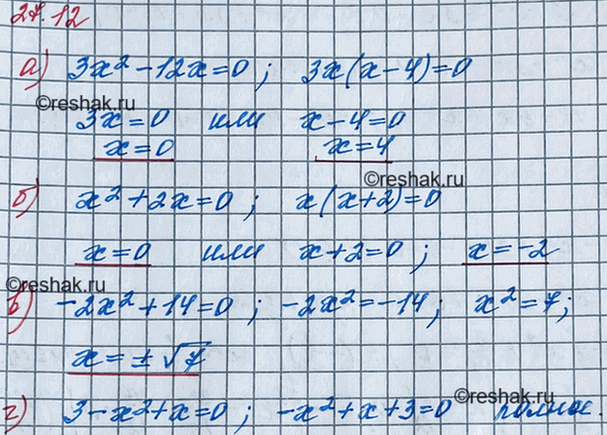 27.12
а) 3x² - 12x = 0 ; 3x(x - 4) = 0
©reshak.ru
3x = 0 или x - 4 = 0
x = 0 x = 4
©reshak.ru
б) x² + 2x = 0 ; x(x + 2) = 0
x = 0 или x + 2 = 0 ; x = -2
©reshak.ru
в) -2x² + 14 = 0 ; -2x² = -14 ; x² = 7 ;
x = ± √7
©reshak.ru
г) 3 - x² + x = 0 ; -x² + x + 3 = 0 полное.